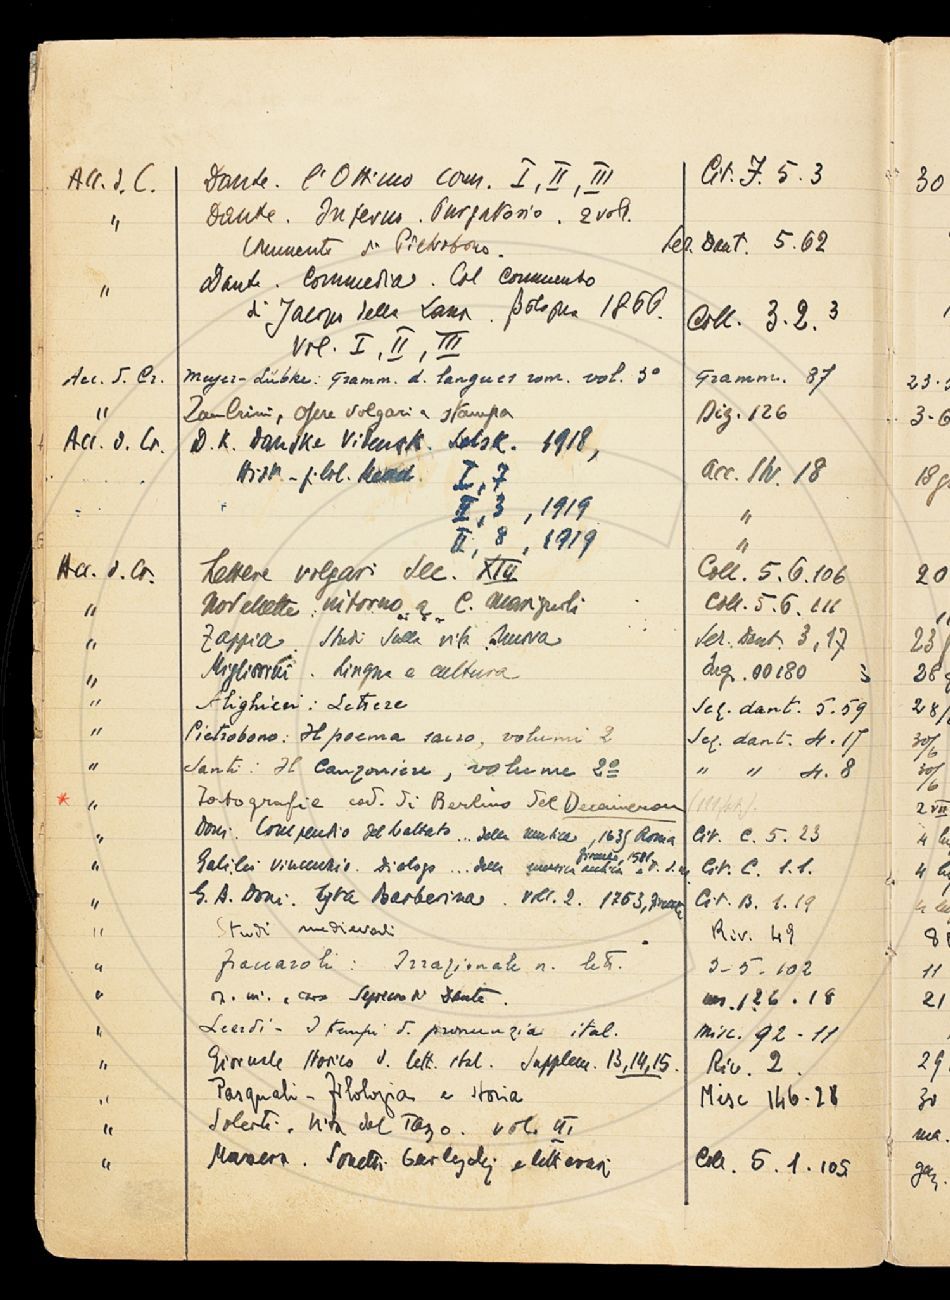 Acc. d. C. Dante. l'Ottimo com. I, II, III Cit. F. 5. 3 30
" Dante. Inferno. Purgatorio. 2 voll.
Commento di Pietrobono. Sez. Dant. 5.62
" Dante. Commedia. Col commento
di Jacopo della Lana. Bologna 1866. Coll. 3.2.3
Vol. I, II, III
Acc. d. Cr. Meyer-Lübke: Gramm. d. langues rom. vol. 3° Gramm. 87
" Zambrini, opere volgari a stampa Diz. 126
Acc. d. Cr. D. K. Danske Vidensk. Selsk. 1918,
Hist-filol. Medd. I, 7 Acc. 18
II, 3, 1919 "
II, 8, 1919 "
Acc. d. Cr. Lettere volgari sec. XIII Coll. 5.6.106 20
" Novellette intorno a C. Marignoli Coll. 5.6.111
" Zappia Studi sulla vita Nuova Sez. Dant. 3, 17 23
" Migliorini. Lingua e cultura Ling. 00180 3 28
" Alighieri: Lettere Sez. dant. 5.59 28/
" Pietrobono: Il poema sacro, volumi 2 Sez. dant. 4.17 30/6
" Santi: Il Canzoniere, volume 2° " " 4.8 30/6
" Fotografie cod. di Berlino del Decameron 2 VII
" Doni. Compendio del trattato... della musica, 1635 Roma Cit. C. 5. 23 4
Firenze, 1581
" Galilei Vincenzio. Dialogo ... della musica antica e Cit. C. 1.1. 4
" G. B. Doni. Lyra Barberina. voll. 2. 1763, Firenze Cit. B. 1.19 4
" Studi medievali Riv. 49 8
" Fraccaroli: Irrazionale n. lett. I-5.102 11
" Dante. 126.18 21
" Leardi - I tempi d. pronunzia ital. Misc. 92-11
" Giornale storico d. lett. ital. Supplem. 13, 14, 15. Riv. 2. 29
" Pasquali - Filologia e storia Misc 146-28 30
" Solerti. Vita del Tasso. vol. III
" Sonetti burleschi e letterari Coll. 5.1.105